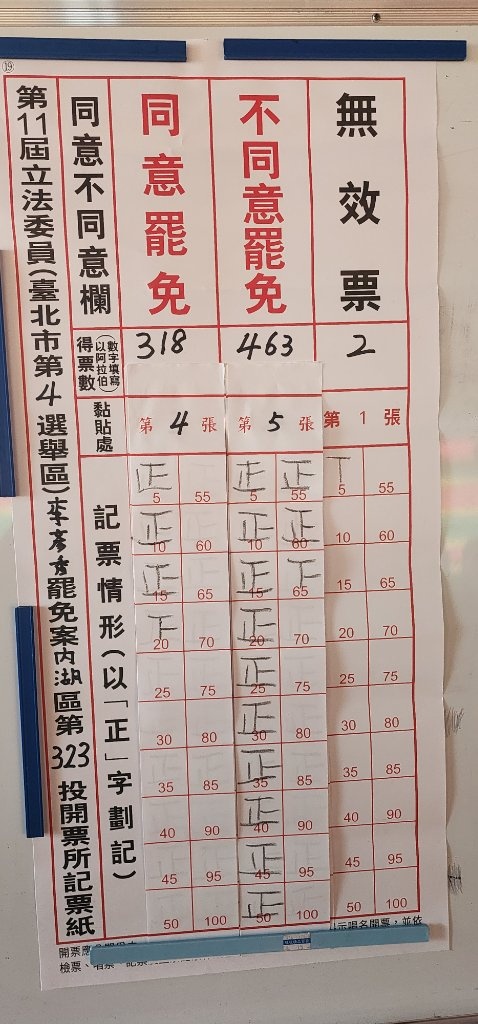 ⑲
第11屆立法委員(臺北市第4選舉區)李彥秀罷免案內湖區第323投開票所記票紙
同意不同意欄
同意罷免
不同意罷免
無效票
得票數(以阿拉伯數字填寫)
318
463
2
黏貼處
第4張
第5張
第1張
記票情形(以「正」字劃記)
正 5 55
正 10 60
正 15 65
下 20 70
25 75
30 80
35 85
40 90
45 95
50 100
正 5 正 55
正 10 正 60
正 15 下 65
正 20 70
正 25 75
正 30 80
正 35 85
正 40 90
正 45 95
正 50 100
丅 5 55
10 60
15 65
20 70
25 75
30 80
35 85
40 90
45 95
50 100
開票應
示唱名開票,並依
檢票、唱票、記票